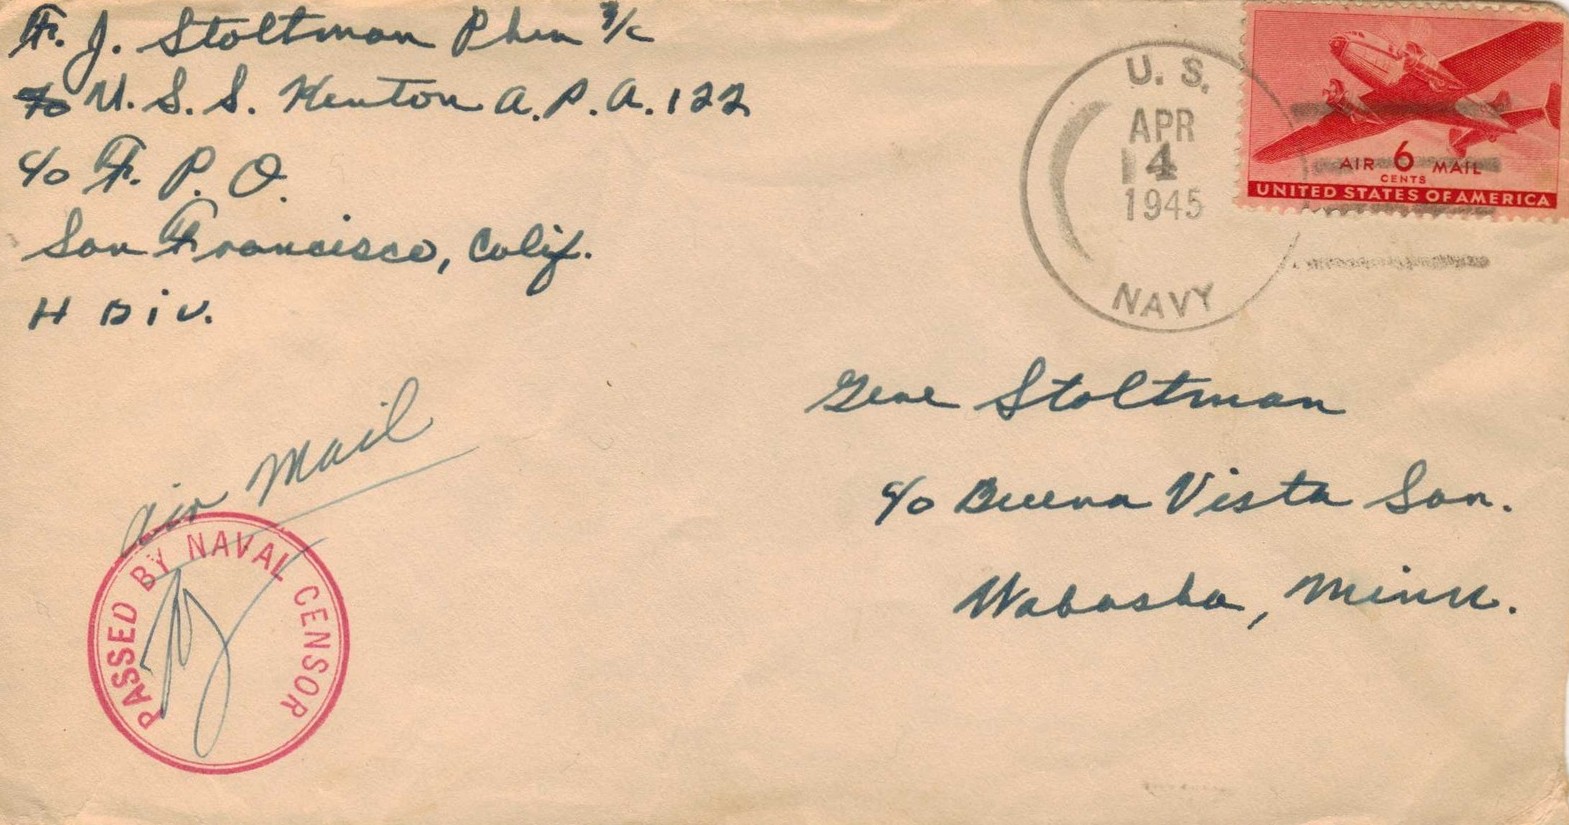 F. J. Stoltman Phm 3/c
c/o U. S. S. Kenton A. P. A. 122
c/o F. P. O.
San Francisco, Calif.
H Div.
U. S.
APR
4
1945
NAVY
AIR 6 MAIL
CENTS
UNITED STATES OF AMERICA
Gene Stoltman
c/o Buena Vista San.
Wabasha, Minn.
Air Mail
PASSED BY NAVAL CENSOR